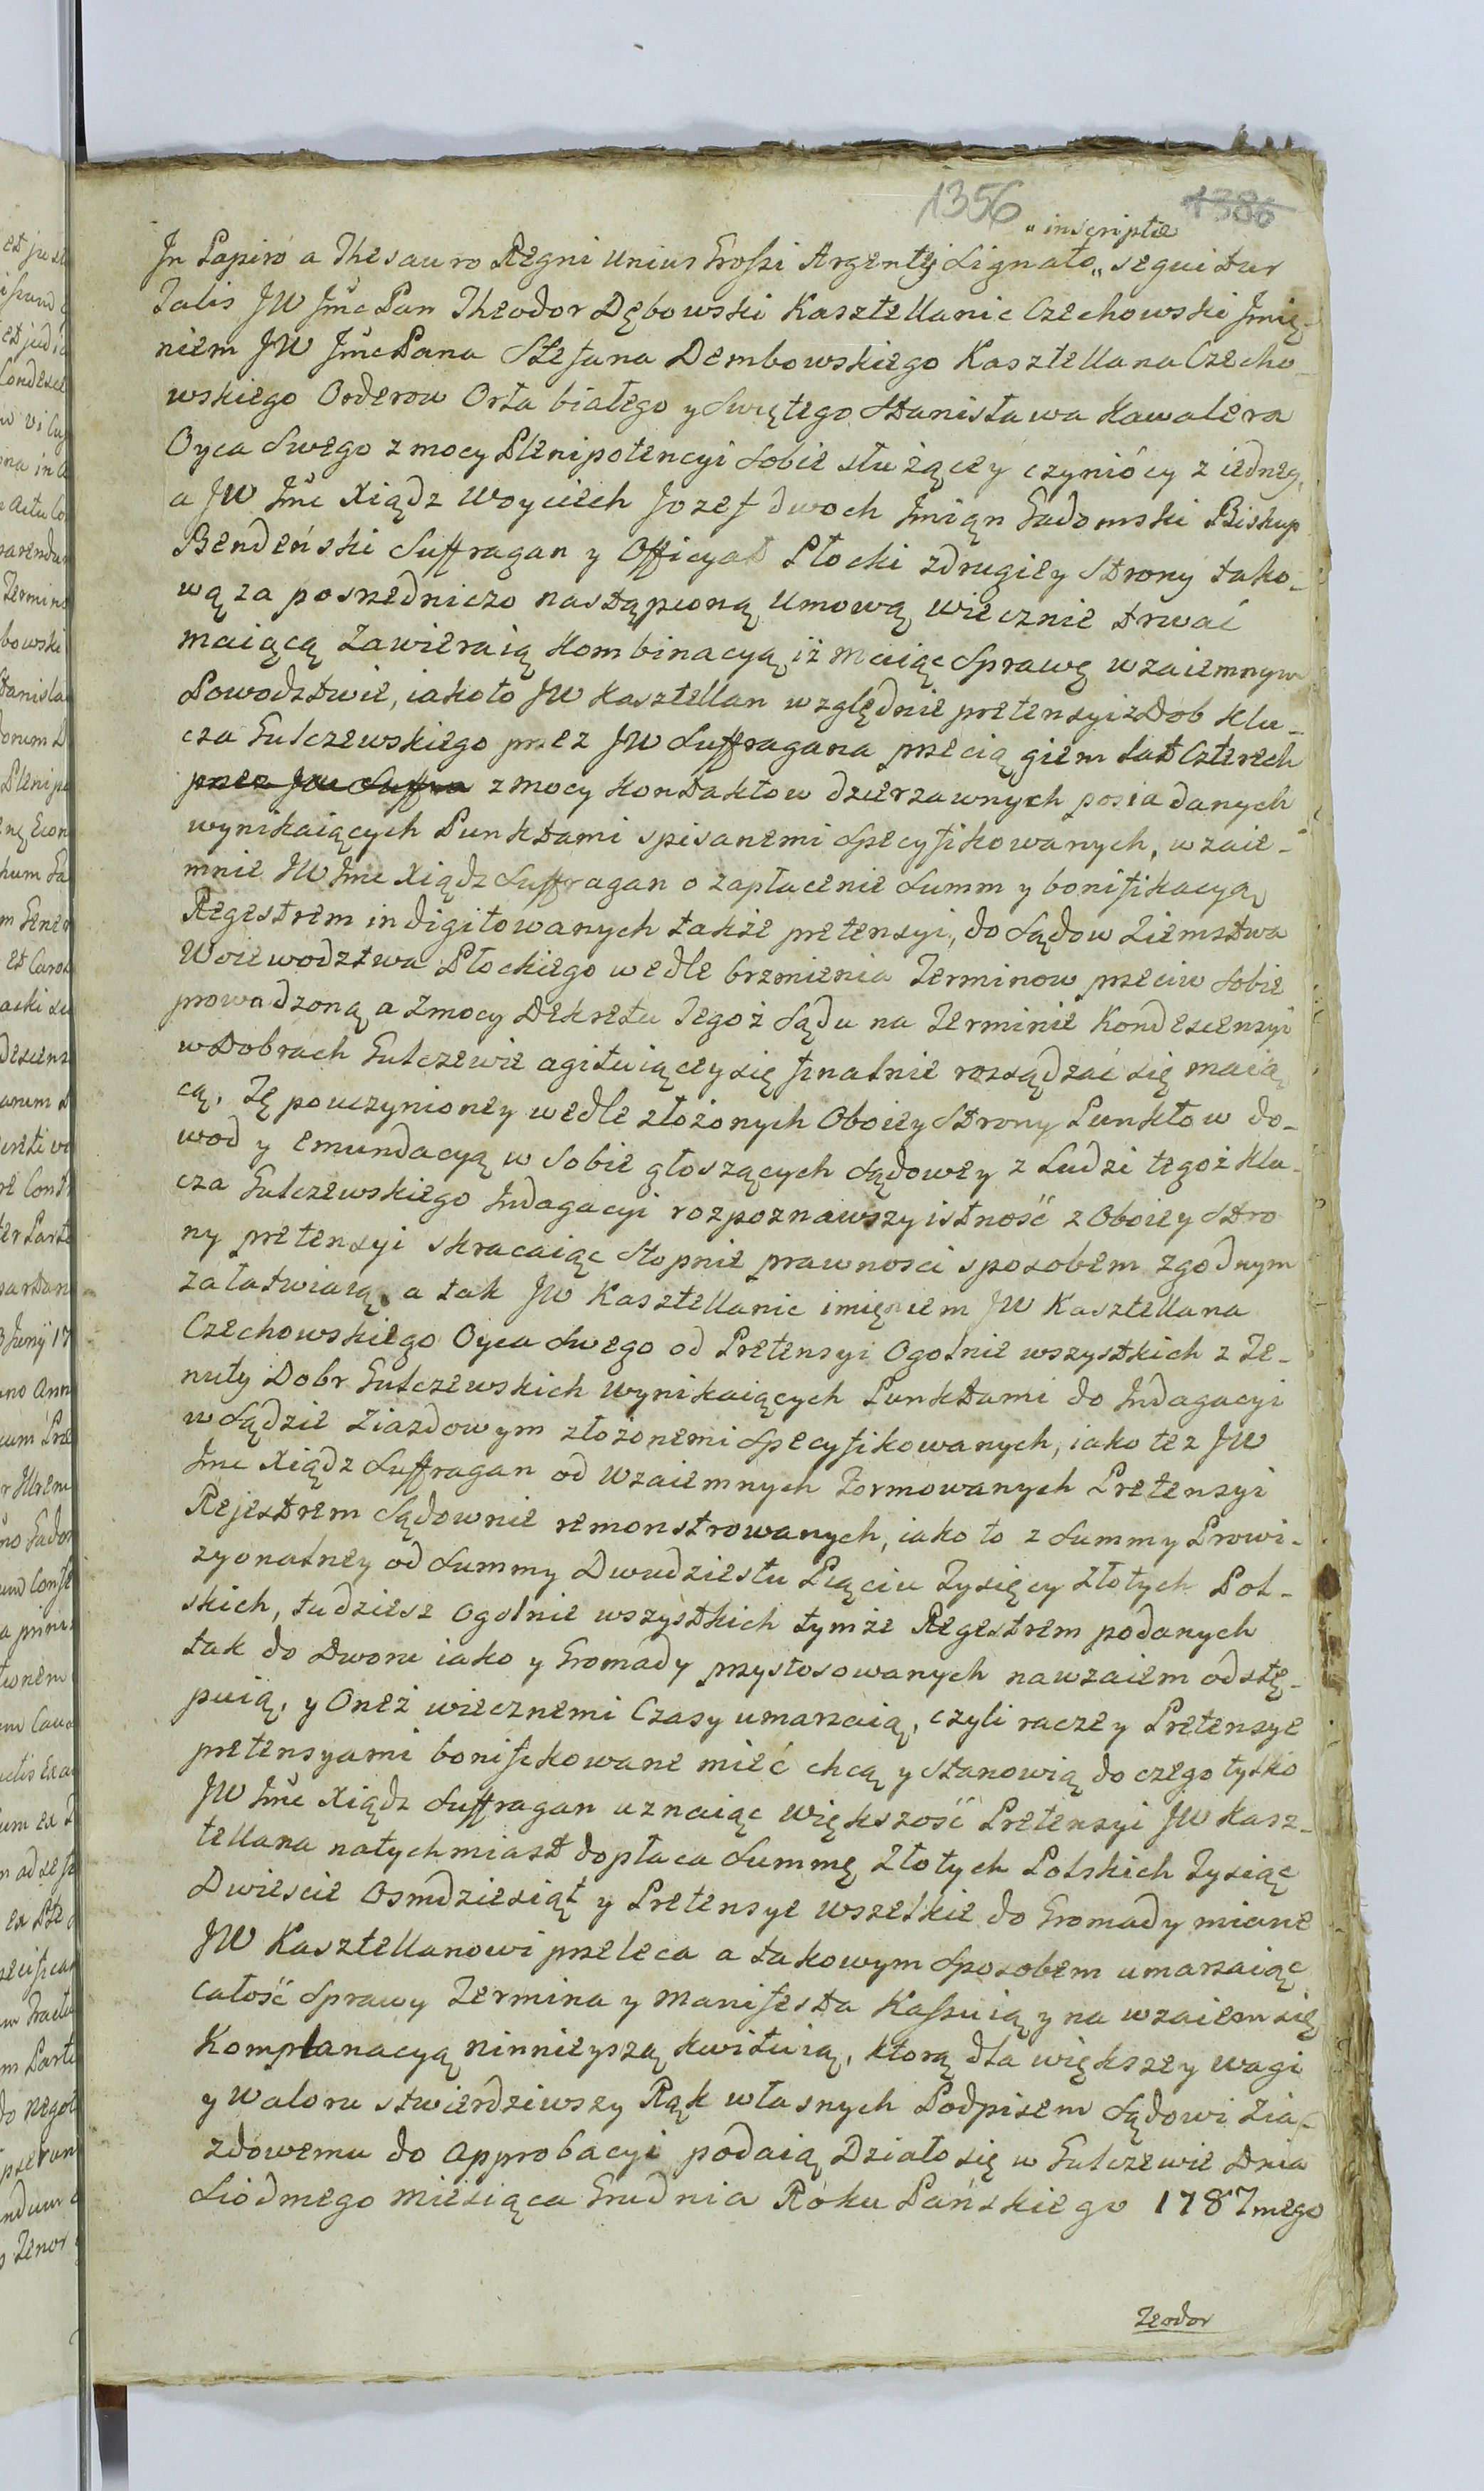 1356 1386
„ inscriptæ
In Papiro a Thesauro Regni unius Grossi Argentei signato „ sequitur
Talis JW Jmć Pan Theodor Dębowski Kasztellanic Czechowski Jmię-
niem JW Jmć Pana Stefana Dembowskiego Kasztellana Czecho-
wskiego Orderow Orła białego y Swiętego Stanisława Kawalera
Oyca Swego z mocy Plenipotencyi sobie służącey czyniący z iedney,
a JW Jmć Xiądz Woyciech Jozef dwoch Jmiąn Gadomski Biskup
Bendeński Suffragan y Officyał Płocki z drugiey Strony tako-
wą za posredniczo nastąpioną Umową wiecznie trwać
maiącą Zawieraią Kombinacyą iż Maiąc Sprawę wzaiemnym
Powodztwie, iakoto JW Kasztellan względnie pretensyi z Dob Klu-
cza Gulczewskiego przez JW Suffragana przeciągiem lat Czterech
przez JW Suffra z mocy Kontaktow dzierzawnych posiadanych
wynikaiących Punktami spisanemi specyfikowanych, wzaie-
mnie JW Jmć Xiądz Suffragan o zapłacenie Summ y bonifikacyą
Regestrem indigitowanych także pretensyi, do Sądow Ziemstwa
Woiewodztwa Płockiego wedle brzmienia Terminow przeciw sobie
prowadzoną a z mocy Dekretu Tegoż Sądu na Terminie Kondescensyi
w Dobrach Gulczewie agituiącey się finalnie rozsądzać się maią
cą, Tę po uczynioney wedle złożonych Oboiey Strony Punktow do-
wod y emundacyą w Sobie głoszących Sądowey z Ludzi tegoż Klu-
cza Gulczewskiego Indagacyi rozpoznawszy istność z Oboiey Stro
ny pretensyi skracaiąc stopnie prawnosci sposobem zgodnym
załatwiaią, a tak JW Kasztellanic imięniem JW Kasztellana
Czechowskiego Oyca Swego od Pretensyi Ogolnie wszystkich z Te-
nuty Dobr Gulczewskich wynikaiących Punktami do Indagacyi
w Sądzie Ziazdowym złożonemi specyfikowanych, iako też JW
Jmć Xiądz Suffragan od wzaiemnych formowanych Pretensyi
Rejestrem Sądownie remonstrowanych, iako to z Summy Prowi-
zyonalney od Summy Dwudziestu Pięciu Tysięcy Złotych Pol-
skich, tudziesz ogolnie wszystkich tymże Regestrem podanych
tak do Dworu iako y Gromady przystosowanych nawzaiem odstę-
puią, y Oneż wiecznemi Czasy umarzaią, czyli raczey Pretensye
pretensyami bonifikowane mieć chcą y stanowią do czego tylko
JW Jmć Xiądz Suffragan uznaiąc większość Pretensyi JW Kasz-
tellana natychmiast dopłaca Summę Złotych Polskich Tysiąc
Dwiescie Osmdziesiąt y Pretensye wszelkie do Gromady miane
JW Kasztellanowi przeleca a takowym Sposobem umarzaiąc
całość Sprawy Termina y Manifesta Kassuią y na wzaiem się
Komplanacyą ninnieyszą kwituią, ktorą dla większey wagi
y Waloru stwierdziwszy Rąk własnych Podpisem Sądowi Zia-
zdowemu do Approbacyi podaią Działo się w Gulczewie Dnia
Siodmego Miesiąca Grudnia Roku Pańskiego 1787mego
Teodor